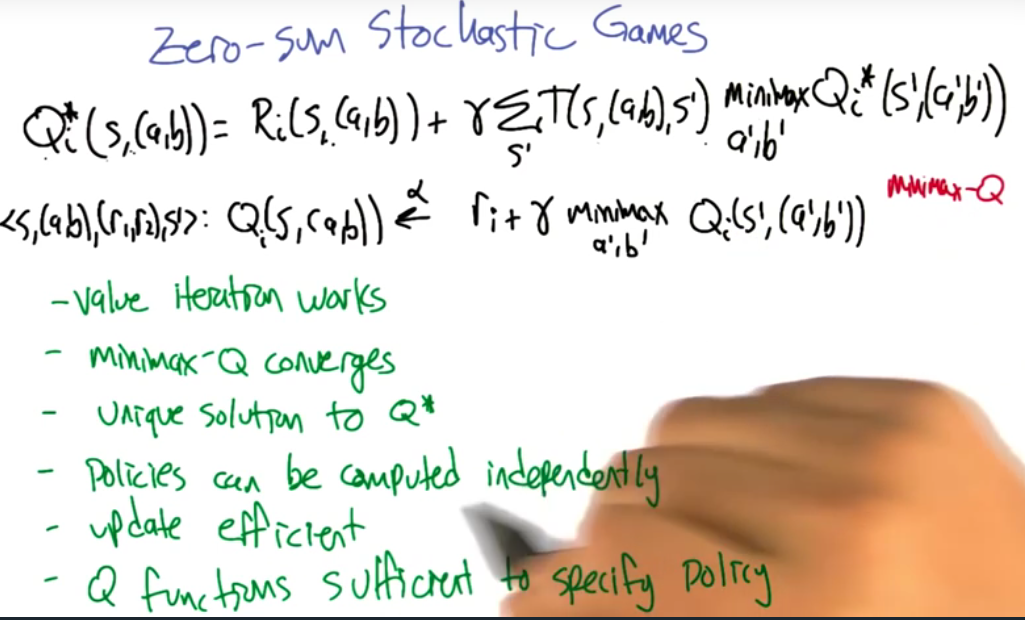 Zero-sum Stochastic Games
Qi*(s,(a,b)) = Ri(s,(a,b)) + γ Σs' T(s,(a,b),s') minimax a',b' Qi*(s',(a',b'))
<s,(a,b),(r1,r2),s'>: Qi(s,(a,b)) ←α ri + γ minimax a',b' Qi(s',(a',b'))
minimax-Q
- value iteration works
- minimax-Q converges
- unique solution to Q*
- policies can be computed independently
- update efficient
- Q functions sufficient to specify policy